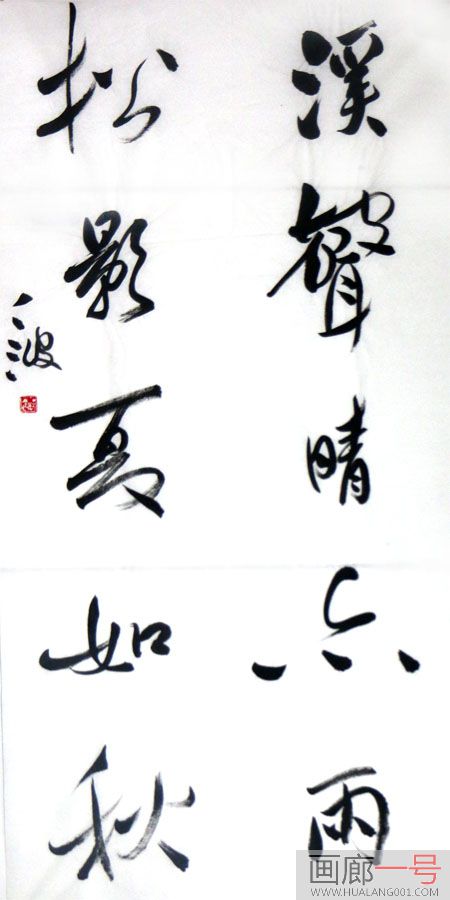 溪聲晴亦雨
松影夏如秋
波
画廊一号
WWW.HUALANG001.COM